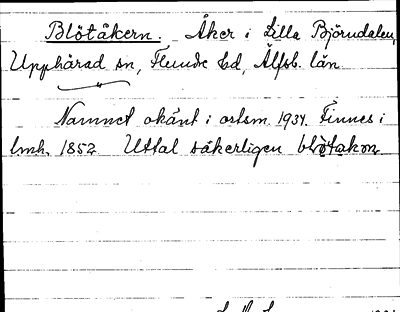 Blötåkern. Åker i Lilla Björndalen,
Upphärad sn, Flundre hd, Älfsb. län.
Namnet okänt i ortsm. 1934. Finnes i
lmh. 1852. Uttal säkerligen blötakɔn